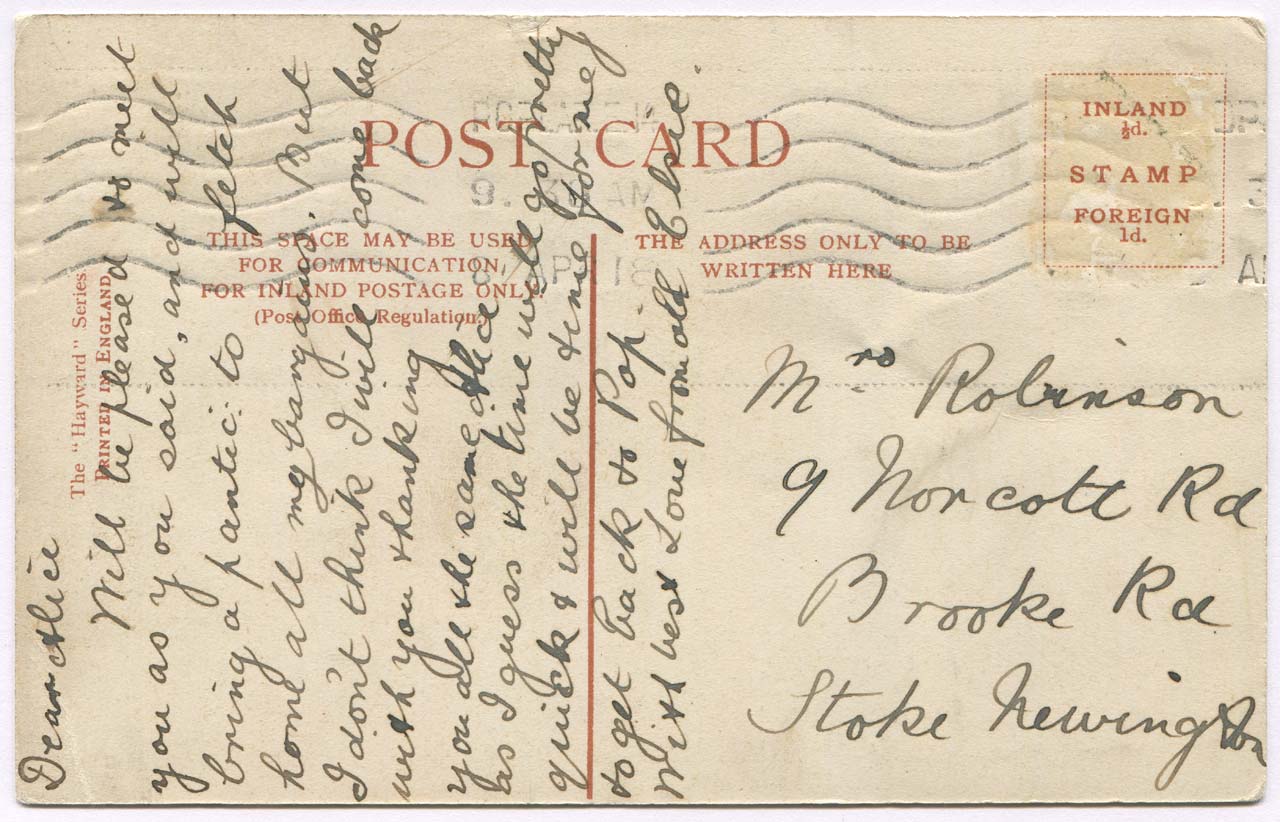 POST CARD
THIS SPACE MAY BE USED
FOR COMMUNICATION,
FOR INLAND POSTAGE ONLY.
(Post Office Regulation.)
THE ADDRESS ONLY TO BE
WRITTEN HERE
INLAND
½d.
STAMP
FOREIGN
1d.
The "Hayward" Series.
PRINTED IN ENGLAND
9. 30 AM
APR 18
Dear Alice
Will be pleased to meet
you as you said, and will
bring a pantic: to fetch
home all my bargains. But
I don't think I will come back
with you thanking
you all the same Alice
as I guess the time will go pretty
quick & will be time for me
to get back to Pop.
With best Love from old Elsie.
Mrs Robinson
9 Norcott Rd
Brooke Rd
Stoke Newington